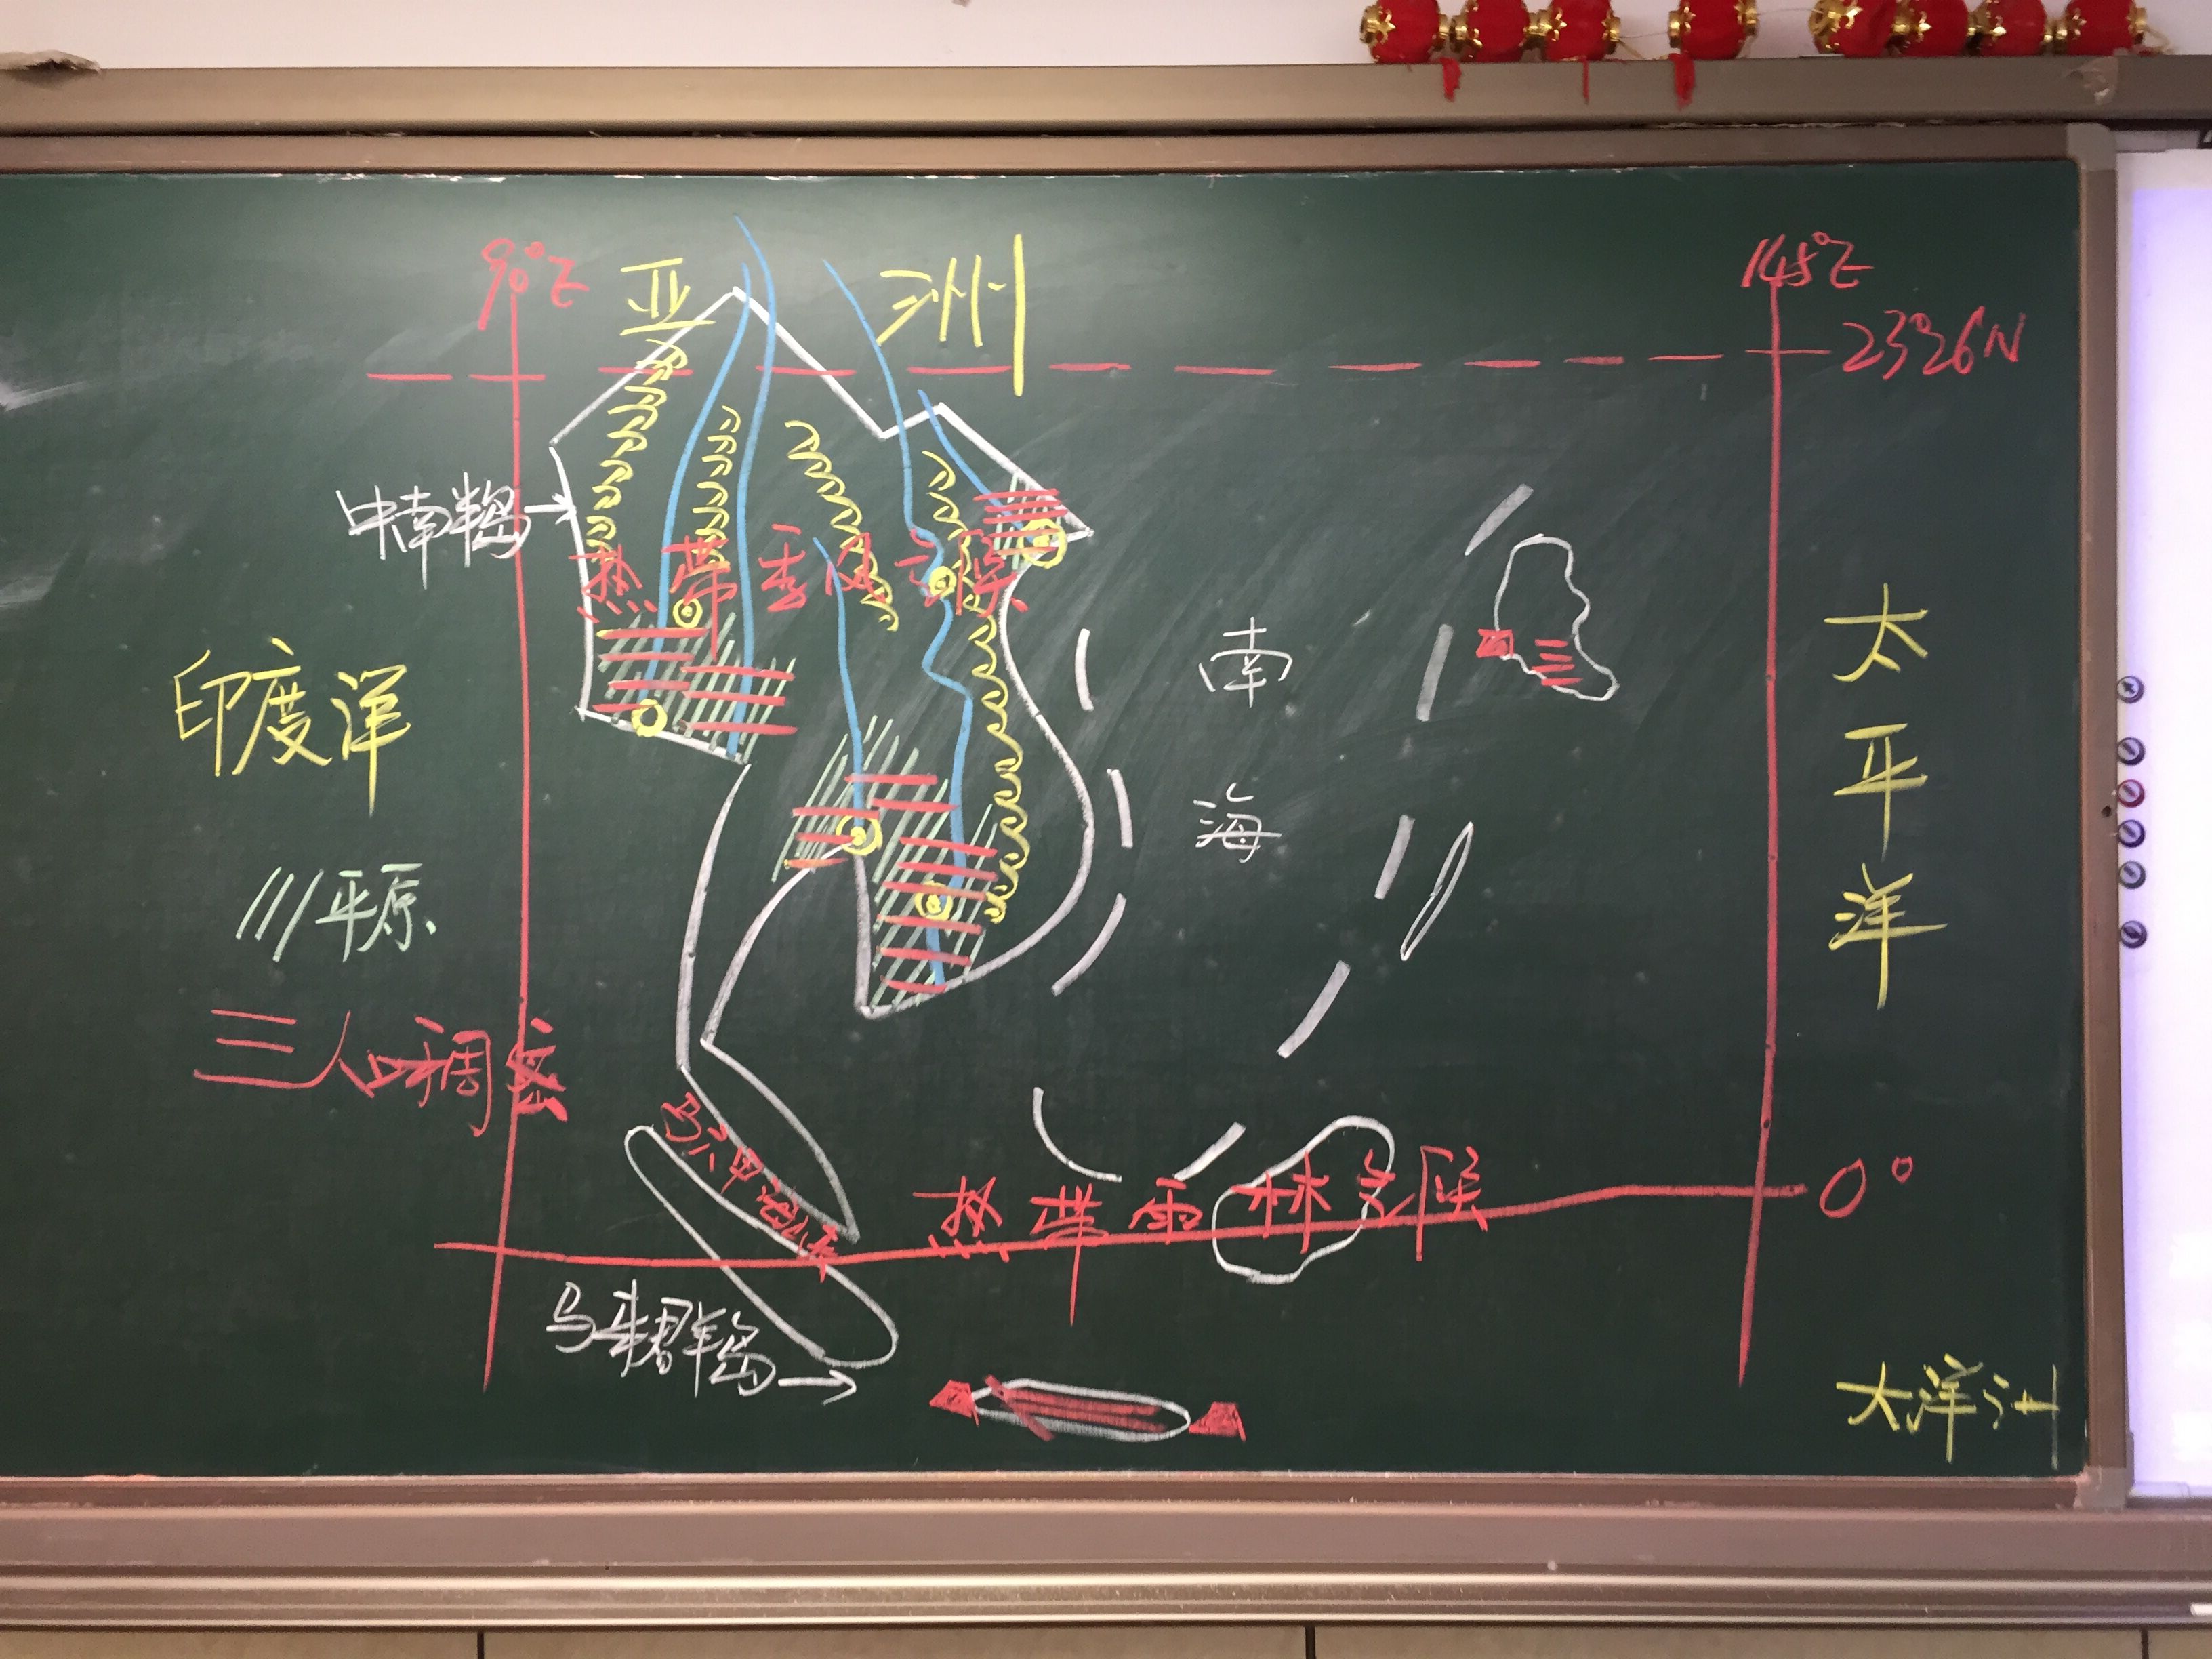 90°E
亚洲
145°E
23°26′N
中南半岛
热带季风气候
印度洋
南海
太平洋
平原
人口稠密
马六甲海峡
热带雨林气候
0°
马来群岛
大洋洲